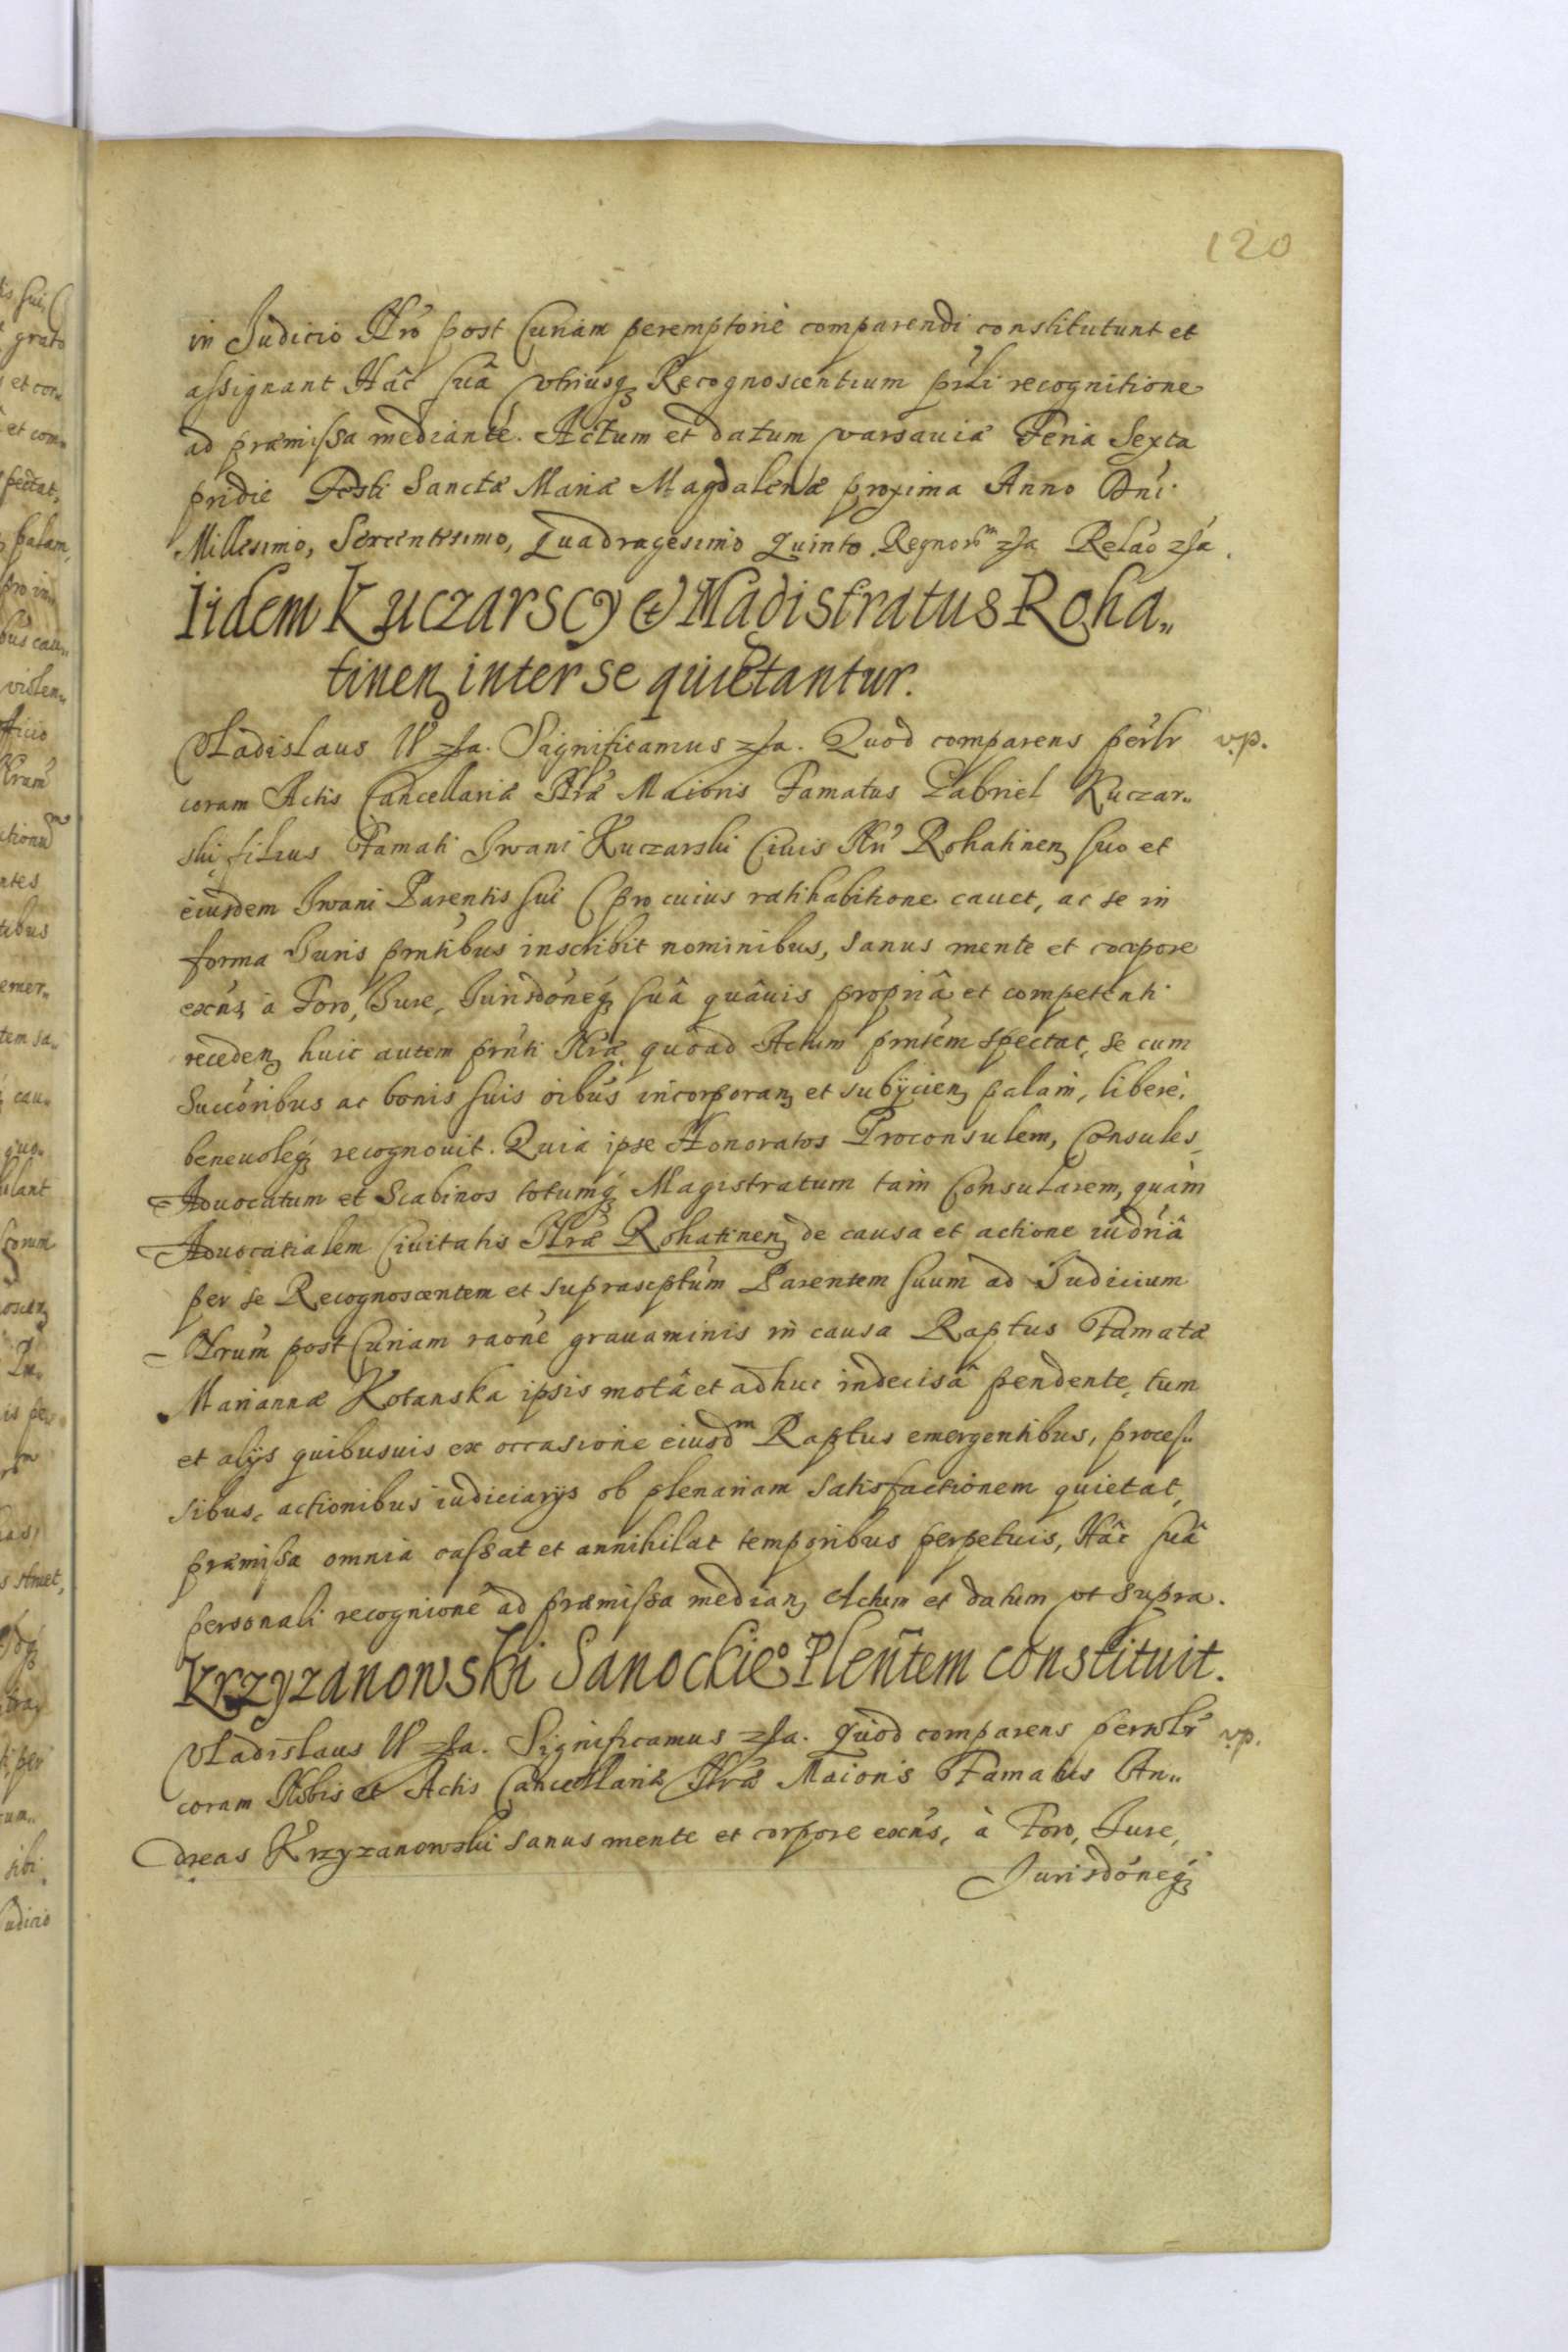 120
in Judicio Nro post Curiam peremptorie comparendi constitutunt et
assignant Hâc suâ vtriusq Recognoscentium prsli recognitione
ad præmissa mediante. Actum et datum varsauiæ Feria Sexta
pridie Festi Sanctæ Mariæ Magdalenæ proxima Anno Dni
Millesimo, Sexcentesimo, Quadragesimo Quinto. Regnorm zsa Relao zsa.
Iidem Kuczarscy et Magistratus Roha„
tinen inter se quietantur.
Vladislaus IV zsa. Significamus zsa. Quod comparens perlr v.p.
coram Actis Cancellariæ Nræ Maioris Famatus Gabriel Kuczar„
ski filius Famati Iwani Kuczarski Ciuis Nri Rohatinen suo et
eiusdem Iwani Parentis sui (pro cuius ratihabitione cauet, ac se in
forma Iuris prntibus inscribit nominibus, sanus mente et corpore
exns à Foro, Iure, Iurisdoneq suâ quâuis propriâ et competenti
receden huic autem prnti Nræ quoad Actum prntem spectat, se cum
Succoribus ac bonis suis oibus incorporan et subijcien palam, libere,
beneuoleq recognouit. Quia ipse Honoratos Proconsulem, Consules,
Aduocatum et Scabinos totumq Magistratum tam Consularem, quàm
Aduocatialem Ciuitatis Nræ Rohatinen de causa et actione iudriâ
per se Recognoscentem et suprascptum Parentem suum ad Iudicium
Nrum post Curiam raone grauaminis in causa Raptus Famatæ
Mariannæ Kotanska ipsis motâ et adhuc indecisâ pendente, tum
et alijs quibusuis ex occasione eiusdm Raptus emergentibus, proces„
sibus, actionibus iudiciarijs ob plenariam satisfactionem quietat,
præmissa omnia cassat et annihilat temporibus perpetuis, Hâc suâ
personali recognione ad præmissa median Actum et datum vt supra.
Krzyzanowski Sanockieo Plentem constituit.
Vladislaus IV zsa. Significamus zsa. Quod comparens persolr v.p.
coram Nobis et Actis Cancellariæ Nræ Maioris Famatus An„
dreas Krzyzanowski sanus mente et corpore exns, à Foro, Iure,
Jurisdoneq